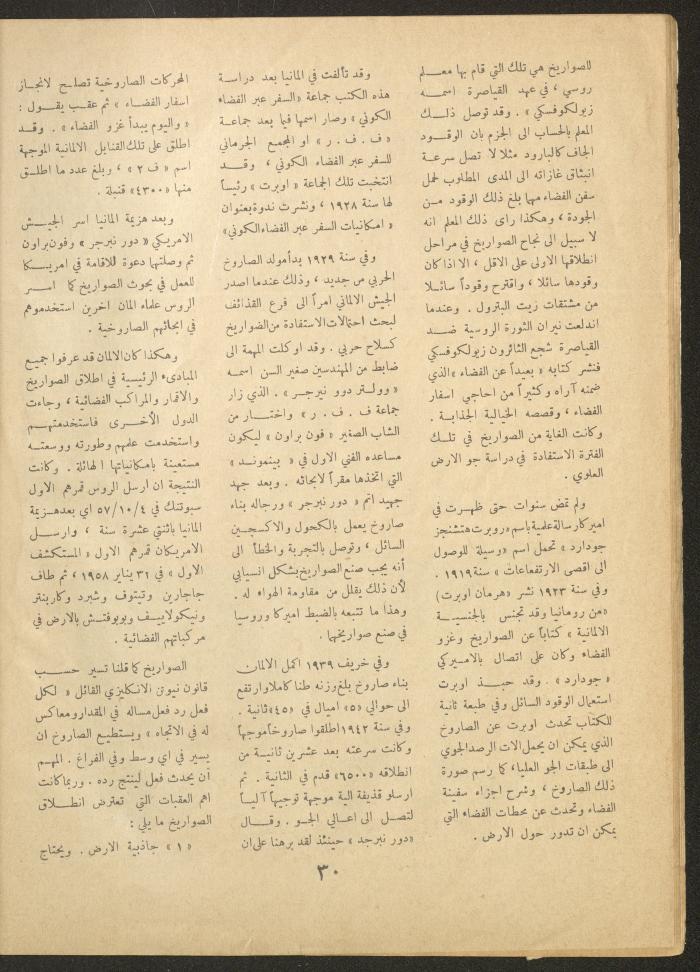 للصواريخ هي تلك التي قام بها معــلم
روسي ، في عهد القياصرة اسمــه
زيولكوفسكي » . وقد توصل ذلــك
المعلم بالحساب الى الجزم بان الوقــود
الجاف كالبارود مثلا لا تصل سرعــة
انبثاق غازاته الى المدى المطلوب لحمل
سفن الفضاء مهما بلغ ذلك الوقود مــن
الجودة ، وهكذا راى ذلك المعلم انه
لا سبيل الى نجاح الصواريخ في مراحل
انطلاقها الاولى على الاقل ، الا اذا كان
وقودها سائلا ، واقترح وقوداً سائــلا
من مشتقات زيت البترول . وعندما
اندلعت نيران الثورة الروسية ضــد
القياصرة شجع الثائرون زيولكوفسكي
فنشر كتابه « بعيداً عن الفضاء » الذي
ضمنه آراه وكثيراً من احاجي اسفار
الفضاء ، وقصصه الخيالية الجذابة .
وكانت الغاية من الصواريخ في تلــك
الفترة الاستفادة في دراسة جو الارض
العلوي .
ولم تمض سنوات حتى ظهــرت في
اميركا رسالة علمية باسم « روبرت هتشنجز
جودارد » تحمل اسم « وسيلة للوصول
الى اقصى الارتفعاعات » سنة ١٩١٩ .
وفي سنة ١٩٢٣ نشر « هرمان اوبرت )
« من رومانيا وقد تجنس بالجنسيــة
الالمانية » كتاباً عن الصواريخ وغزو
الفضاء وكان على اتصال بالاميركي
« جودارد » . وقد حبــذ اوبرت
استعمال الوقود السائل وفي طبعة ثانية
للكتاب تحدث اوبرت عن الصاروخ
الذي يمكن ان يحمل الات الرصد الجوي
الى طبقات الجو العليا ، كما رسم صورة
ذلك الصاروخ ، وشرح اجزاء سفينة
الفضاء وتحدث عن محطات الفضاء التي
يمكن ان تدور حول الارض .
وقد تألفت في المانيا بعد دراسة
هذه الكتب جماعة « السفر عبر الفضاء
الكوني » وصار اسمها فيما بعد جماعــة
« ف . ف . ر » او المجمع الجرماني
للسفر عبر الفضاء الكوني ، وقــد
انتخبت تلك الجماعة « اوبرت » رئيساً
لها سنة ١٩٢٨ ، ونشرت ندوة بعنوان
« امكانيات السفر عبر الفضاء الكوني »
وفي سنة ١٩٢٩ بدأ مولد الصاروخ
الحربي من جديد ، وذلك عندما اصدر
الجيش الالماني امراً الى فرع القذائف
لبحث احتمالات الاستفادة من الصواريخ
كسلاح حربي . وقد اوكلت المهمة الى
ضابط من المهندسين صغير السن اسمــه
« وولــتر دوو نبرجــر » . الذي زار
جماعة ف . ف . ر » واختــار من
الشاب الصغير « فون براون » ليكون
مساعده الفني الاول في « بينمونــد »
التي اتخذها مقراً لابحاثه . وبعد جهد
جهيد اتم « دور نبرجر » ورجاله بناء
صاروخ يعمل بالكحول والاكسجــين
السائل ، وتوصل بالتجربة والخطأ الى
أنه يجب صنع الصواريخ بشكل انسيابي
لأن ذلك يقلل من مقاومة الهواء له .
وهذا ما تتبعه بالضبط اميركا وروسيا
في صنع صواريخها .
وفي خريف ١٩٣٩ اكمل الالمان
بناء صاروخ بلغ وزنه طنا كاملا وارتفع
الى حوالي « ٥ » اميال في « ٤٥ » ثانية .
وفي سنة ١٩٤٢ اطلقوا صاروخاً موجهاً
وكانت سرعته بعد عشرين ثانيــة من
انطلاقه « ٦٥٠٠ » قدم في الثانية . ثم
ارسلو قذيفة الية موجهة توجيهاً آليــاً
لتصل الى اعــالي الجــو . وقــال
« دور نبرجد » حينئذ لقد برهنا على ان
المحركات الصاروخية تصلــح لانجــاز
اسفار الفضــاء » ثم عقب يقــول :
« واليوم يبدأ غزو الفضاء » . وقــد
اطلق على تلك القنابل الالمانية الموجهة
اسم « ف ٢ » ، وبلغ عدد ما اطلــق
منها « ٤٣٠٠ » قنبلة .
وبعد هزيمة المانيا اسر الجيــش
الاميركي « دور نبرجر » وفون براون
ثم وصلتها دعوة للاقامة في اميركــا
للعمل في بحوث الصواريخ كما اســر
الروس علماء المان اخرين استخدموهم
في ابحاثهم الصاروخية .
وهكذا كان الالمان قد عرفوا جميع
المبادىء الرئيسية في اطلاق الصواريخ
والاقمار والمراكب الفضائية ، وجاءت
الدول الأخــرى فاستخدمتهــم
واستخدمت علمهم وطورته ووسعتــه
مستعينة بامكانياتها الهائلة . وكانت
النتيجة ان ارسل الروس قمرهم الاول
سبوتنك في ٥٧/١٠/٤ اي بعد هــزيمة
المانيا باثنتي عشرة سنة ، وارســل
الامريكان قمرهم الاول « المستكشف
الاول » في ٣١ يناير ١٩٥٨ ، ثم طاف
جاجارين وتيتوف وشبرد وكاربنتر
ونيكولاييــف وبوبوفتــش بالارض في
مركباتهم الفضائية .
الصواريخ كما قلنا تسير حســب
قانون نيوتن الانكليزي القائل « لكل
فعل رد فعل مساله في المقدار ومعاكس
له في الاتجاه » ويستطيع الصاروخ ان
يسير في اي وسط وفي الفراغ . المهــم
أن يحدث فعل لينتج رده . وربما كانت
اهم العقبات التي تعترض انطــلاق
الصواريخ ما يلي :
« ١ » جاذبية الارض . ويحتاج
٣٠